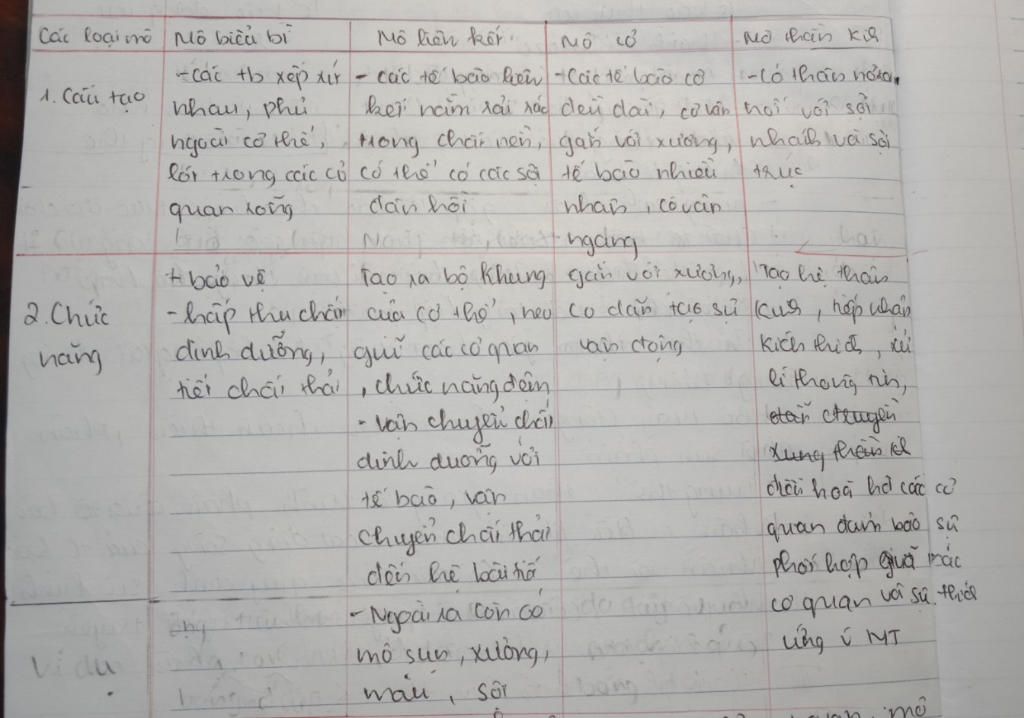 Các loại mô
Mô biểu bì
Mô liên kết
Mô cơ
Mô thần kinh
1. Cấu tạo
- các tb xếp xít
nhau, phủ
ngoài cơ thể,
lót trong các cơ
quan rỗng
- các tế bào liên
kết nằm rải rác
trong chất nền,
có thể có các sợi
đàn hồi
- Các tế bào cơ
đều dài, cơ vân
gắn với xương,
tế bào nhiều
nhân, có vân
ngang
- Có thân nơron,
nối với sợi
nhánh và sợi
trục
2. Chức
năng
+ bảo vệ
- hấp thu chất
dinh dưỡng,
tiết chất thải
Tạo ra bộ khung
của cơ thể, neo
giữ các cơ quan
, chức năng đệm
- vận chuyển chất
dinh dưỡng với
tế bào, vận
chuyển chất thải
đến hệ bài tiết
gắn với xương,
co dãn tạo sự
vận động
Tạo hệ thần
kinh, tiếp nhận
kích thích, xử
lí thông tin,
điều hoà hđ các cơ
quan đảm bảo sự
phối hợp giữa các
cơ quan và sự thích
ứng MT
Ví dụ
- Ngoài ra còn có
mô sụn, xương,
máu, sợi
mô